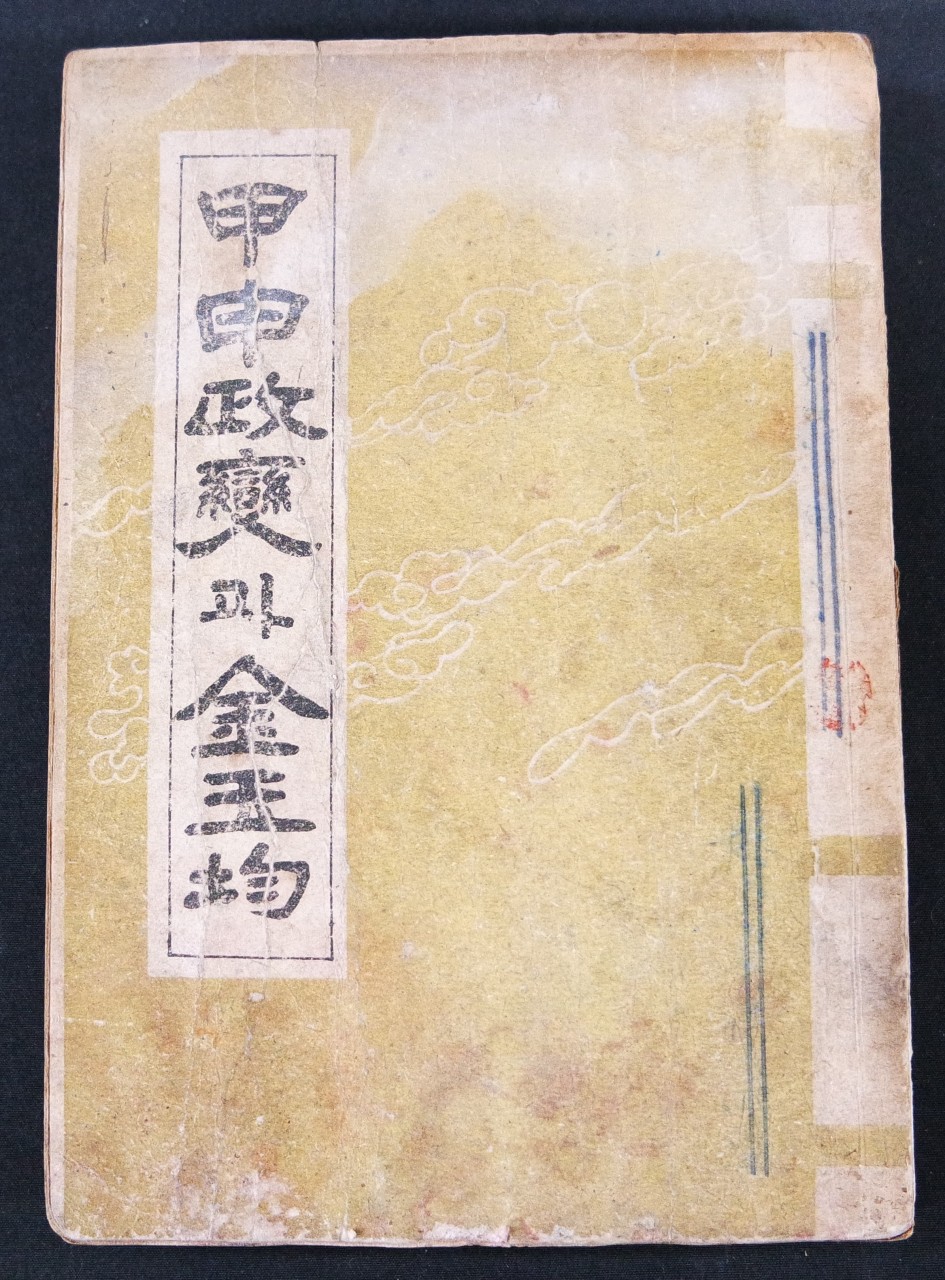 甲申政變과金玉均